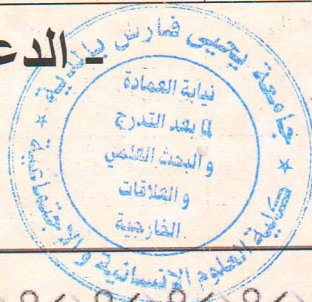 - الدع
جامعة يحيى فارس بالمدية
نيابة العمادة
لما بعد التدرج
و البحث العلمي
و العلاقات
الخارجية
* كلية العلوم الإنسانية و الاجتماعية *